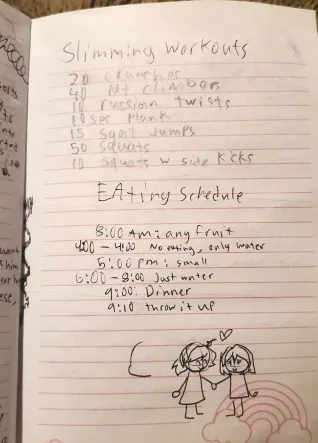 Slimming Workouts
20 crunches
40 Mt climbers
10 russian twists
10 sec plank
15 sqat jumps
50 squats
10 squats w side kicks
EAting Schedule
8:00 AM: any fruit
– 4:00 No eating, only water
5:00 pm: small
6:00 – 8:00 Just water
9:00: Dinner
9:10 throw it up